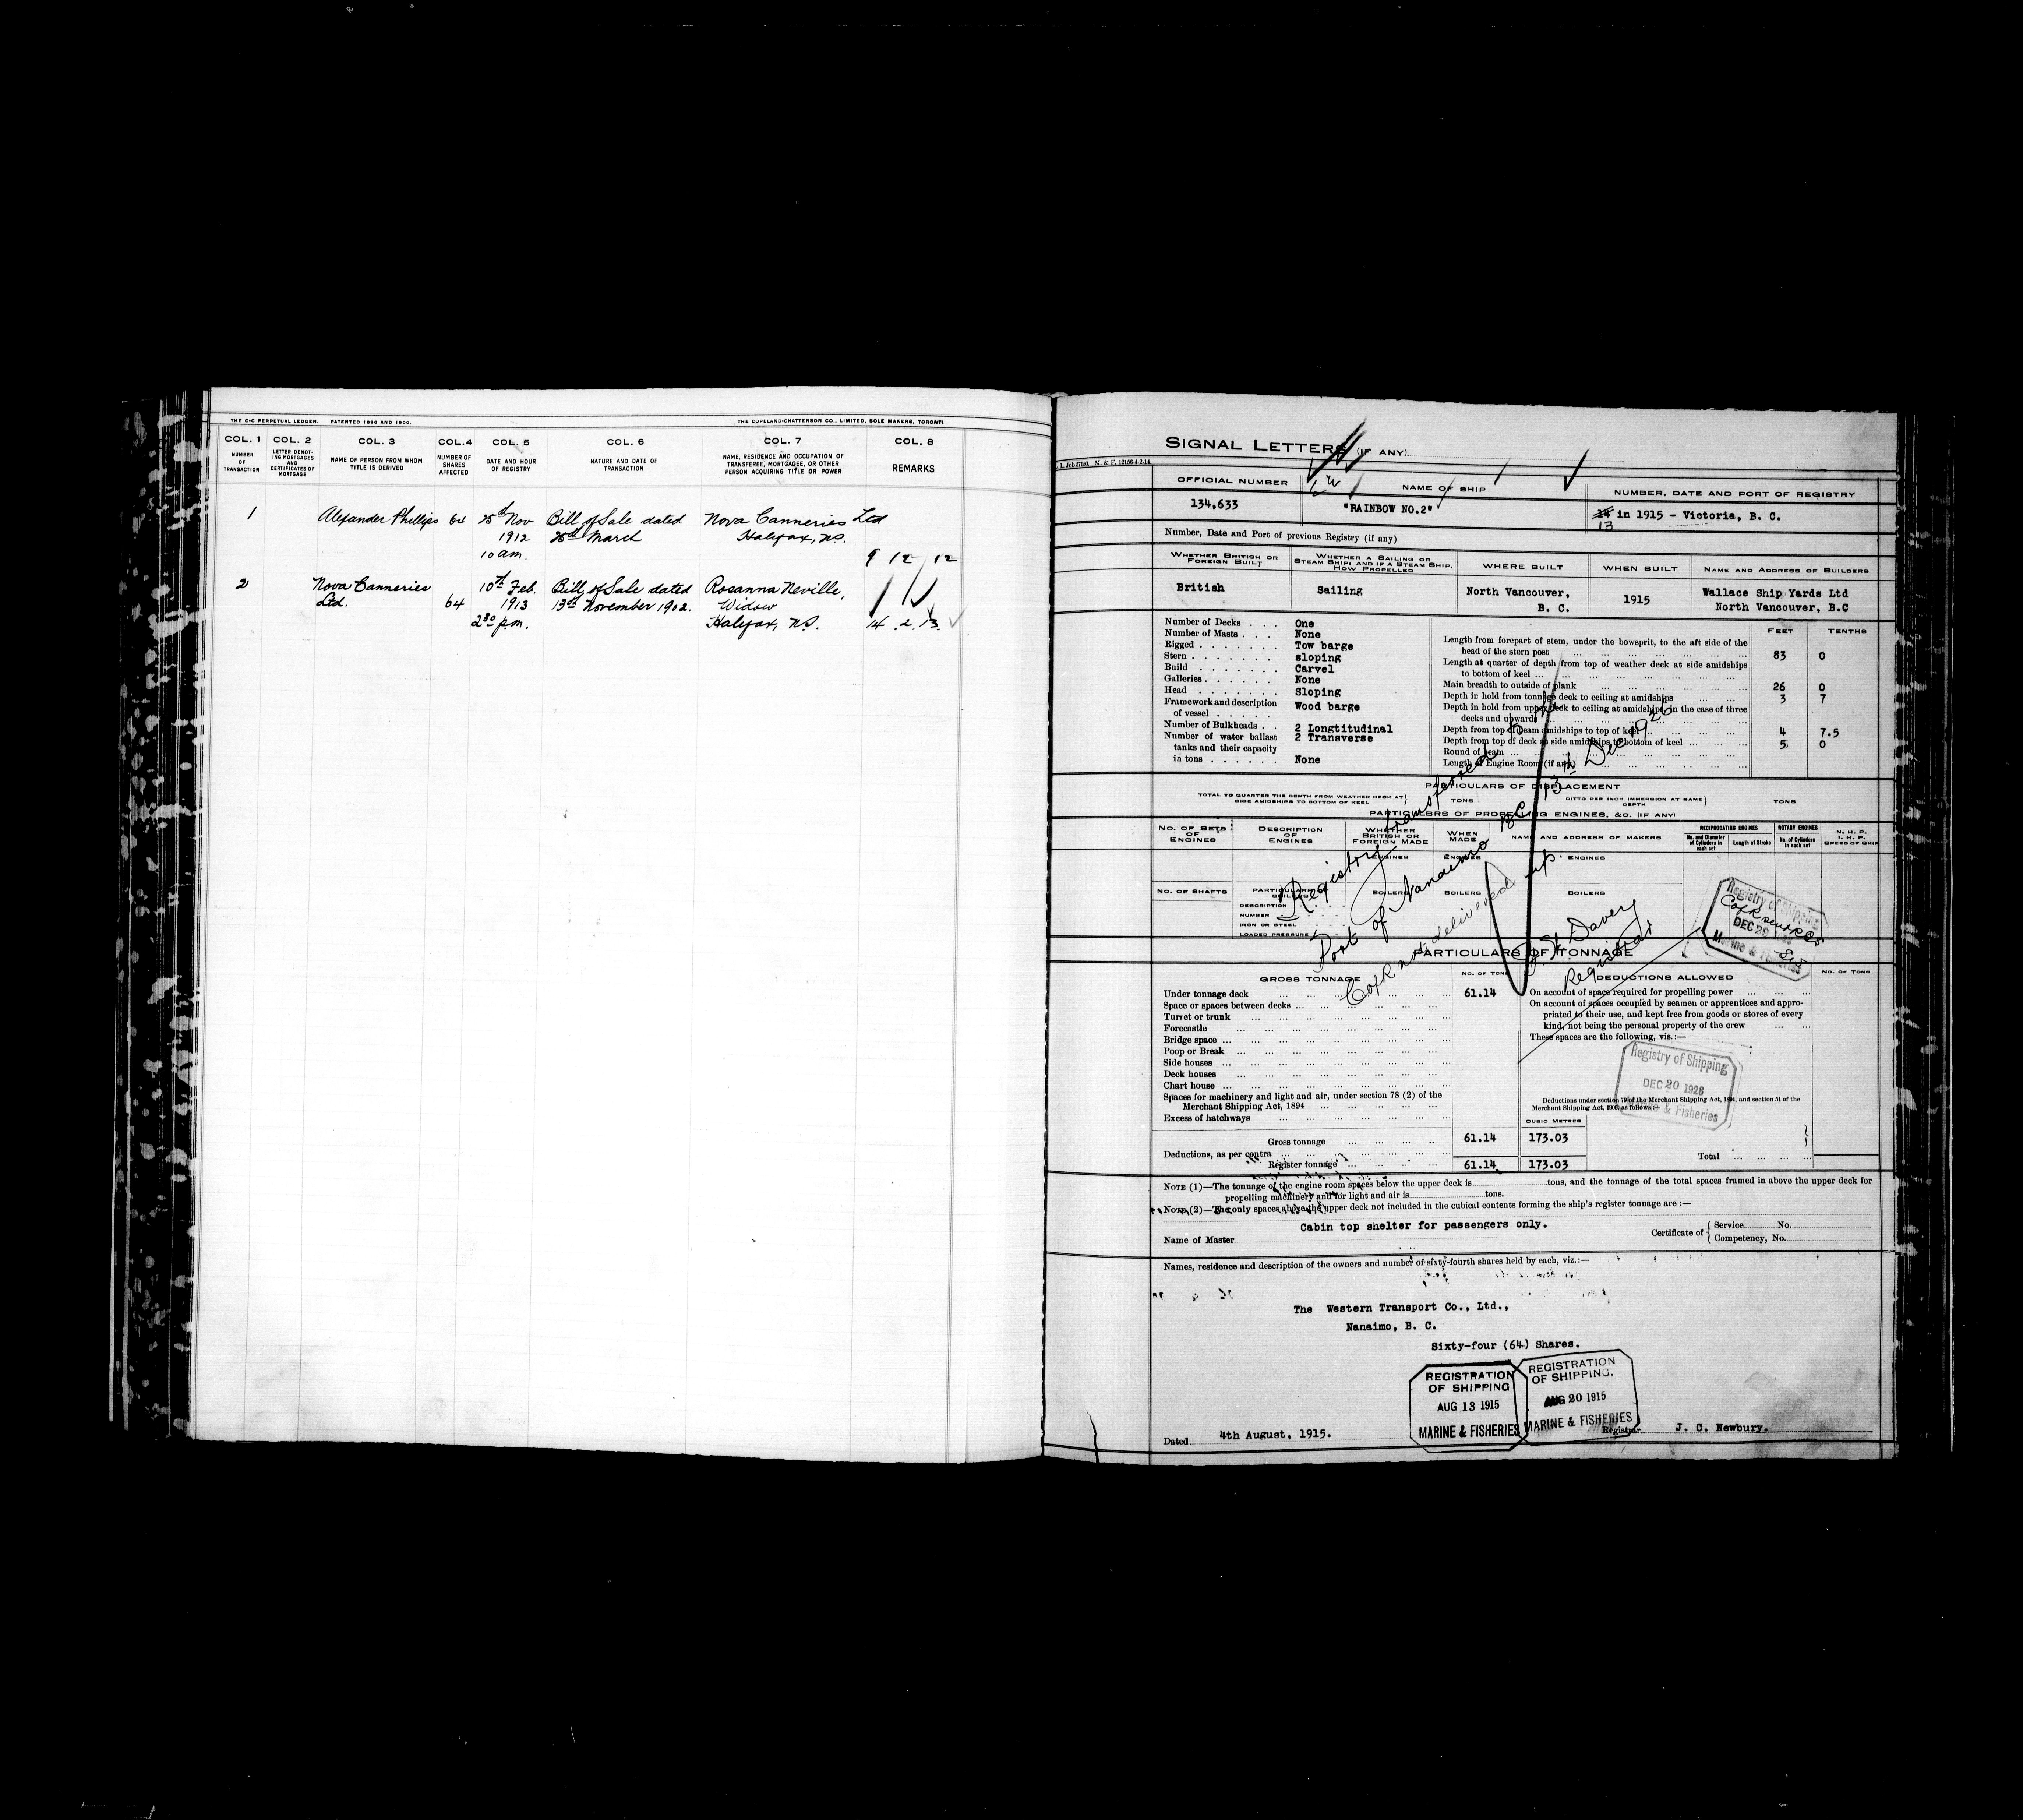 THE C-C PERPETUAL LEDGER. PATENTED 1896 AND 1900. THE COPELAND-CHATTERSON CO., LIMITED, SOLE MAKERS, TORONTO.
COL. 1 COL. 2 COL. 3 COL. 4 COL. 5 COL. 6 COL. 7 COL. 8
NUMBER OF TRANSACTION
LETTER DENOTING MORTGAGES AND CERTIFICATES OF MORTGAGE
NAME OF PERSON FROM WHOM TITLE IS DERIVED
NUMBER OF SHARES AFFECTED
DATE AND HOUR OF REGISTRY
NATURE AND DATE OF TRANSACTION
NAME, RESIDENCE AND OCCUPATION OF TRANSFEREE, MORTGAGEE, OR OTHER PERSON ACQUIRING TITLE OR POWER
REMARKS
1 Alexander Phillips 64 25th Nov Bill of Sale dated Nova Canneries Ltd
1912 25th March Halifax, N.S.
10 am. 9 12 12
2 Nova Canneries 10th Feb. Bill of Sale dated Rosanna Neville,
Ltd. 64 1913 13th November 1902. Widow
2 30 p.m. Halifax, N.S. 14 . 2 . 13.
SIGNAL LETTERS (IF ANY)
OFFICIAL NUMBER NAME OF SHIP NUMBER, DATE AND PORT OF REGISTRY
134,633 "RAINBOW NO.2" 13 in 1915 - Victoria, B. C.
Number, Date and Port of previous Registry (if any)
WHETHER BRITISH OR FOREIGN BUILT
WHETHER A SAILING OR STEAM SHIP; AND IF A STEAM SHIP, HOW PROPELLED
WHERE BUILT
WHEN BUILT
NAME AND ADDRESS OF BUILDERS
British Sailing North Vancouver, B. C. 1915 Wallace Ship Yards Ltd
North Vancouver, B.C
Number of Decks . . . One
Number of Masts . . . None
Rigged . . . . . . . Tow barge
Stern . . . . . . . sloping
Build . . . . . . . Carvel
Galleries . . . . . . None
Head . . . . . . . Sloping
Framework and description of vessel . . . . . . Wood barge
Number of Bulkheads . . 2 Longtitudinal
2 Transverse
Number of water ballast tanks and their capacity in tons . . . . . . None
FEET TENTHS
Length from forepart of stem, under the bowsprit, to the aft side of the head of the stern post 83 0
Length at quarter of depth from top of weather deck at side amidships to bottom of keel
Main breadth to outside of plank 26 0
Depth in hold from tonnage deck to ceiling at amidships 3 7
Depth in hold from upper deck to ceiling at amidships, in the case of three decks and upwards
Depth from top of beam amidships to top of keel 4 7.5
Depth from top of deck at side amidships to bottom of keel 5 0
Round of beam
Length of Engine Room (if any)
PARTICULARS OF DISPLACEMENT
TOTAL TO QUARTER THE DEPTH FROM WEATHER DECK AT SIDE AMIDSHIPS TO BOTTOM OF KEEL TONS DITTO PER INCH IMMERSION AT SAME DEPTH TONS
PARTICULARS OF PROPELLING ENGINES, &C. (IF ANY)
NO. OF SETS OF ENGINES
DESCRIPTION OF ENGINES
WHETHER BRITISH OR FOREIGN MADE
WHEN MADE
NAME AND ADDRESS OF MAKERS
RECIPROCATING ENGINES
No. and Diameter of Cylinders in each set
Length of Stroke
ROTARY ENGINES
No. of Cylinders in each set
N. H. P.
I. H. P.
SPEED OF SHIP
ENGINES ENGINES ENGINES
NO. OF SHAFTS PARTICULARS BOILERS BOILERS BOILERS BOILERS
DESCRIPTION
NUMBER
IRON OR STEEL
LOADED PRESSURE
Registry transferred to the
Port of Nanaimo BC 13th Dec 1926
C of R not delivered up
Davey
Registrar
Registry of Shipping
DEC 20
Marine & Fisheries
PARTICULARS OF TONNAGE
GROSS TONNAGE NO. OF TONS DEDUCTIONS ALLOWED NO. OF TONS
Under tonnage deck 61.14
Space or spaces between decks
Turret or trunk
Forecastle
Bridge space
Poop or Break
Side houses
Deck houses
Chart house
Spaces for machinery and light and air, under section 78 (2) of the Merchant Shipping Act, 1894
Excess of hatchways
On account of space required for propelling power
On account of spaces occupied by seamen or apprentices and appropriated to their use, and kept free from goods or stores of every kind, not being the personal property of the crew
These spaces are the following, vis.:—
Registry of Shipping
DEC 20 1926
Marine & Fisheries
Deductions under section 79 of the Merchant Shipping Act, 1894, and section 54 of the Merchant Shipping Act, 1906, as follows
CUBIC METRES
Gross tonnage 61.14 173.03
Deductions, as per contra
Register tonnage 61.14 173.03
Total
NOTE (1)—The tonnage of the engine room spaces below the upper deck is tons, and the tonnage of the total spaces framed in above the upper deck for
propelling machinery and for light and air is tons.
NOTE (2)—The only spaces above the upper deck not included in the cubical contents forming the ship's register tonnage are :—
Cabin top shelter for passengers only.
Name of Master
Certificate of Service No.
Competency, No.
Names, residence and description of the owners and number of sixty-fourth shares held by each, viz.:—
The Western Transport Co., Ltd.,
Nanaimo, B. C.
Sixty-four (64) Shares.
REGISTRATION OF SHIPPING
AUG 13 1915
MARINE & FISHERIES
REGISTRATION OF SHIPPING.
AUG 20 1915
MARINE & FISHERIES
Dated 4th August, 1915. Registrar J. C. Newbury.